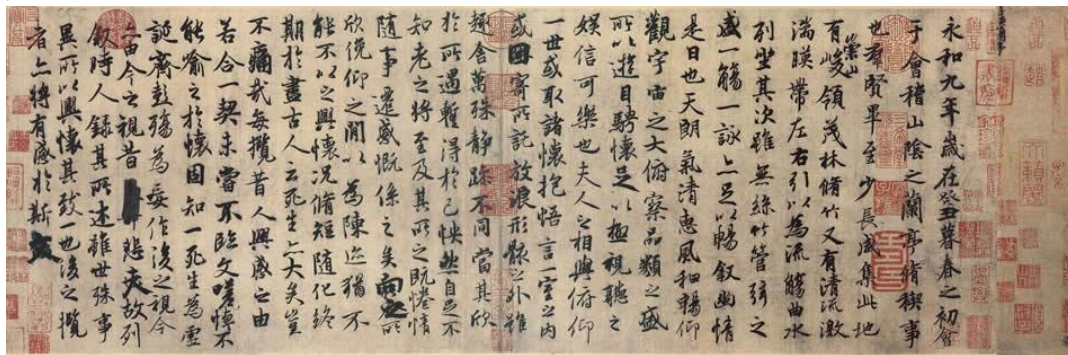 永和九年歲在癸丑暮春之初會
于會稽山陰之蘭亭脩稧事
也群賢畢至少長咸集此地
有崇山峻領茂林脩竹又有清流激
湍暎帶左右引以為流觴曲水
列坐其次雖無絲竹管弦之
盛一觴一詠亦足以暢敘幽情
是日也天朗氣清惠風和暢仰
觀宇宙之大俯察品類之盛
所以遊目騁懷足以極視聽之
娛信可樂也夫人之相與俯仰
一世或取諸懷抱悟言一室之內
或因寄所託放浪形骸之外雖
趣舍萬殊靜躁不同當其欣
於所遇暫得於己怏然自足不
知老之將至及其所之既惓情
隨事遷感慨係之矣向之所
欣俛仰之閒以為陳迹猶不
能不以之興懷況脩短隨化終
期於盡古人云死生亦大矣豈
不痛哉每攬昔人興感之由
若合一契未嘗不臨文嗟悼不
能喻之於懷固知一死生為虛
誕齊彭殤為妄作後之視今
亦由今之視昔悲夫故列
敘時人錄其所述雖世殊事
異所以興懷其致一也後之攬
者亦將有感於斯文